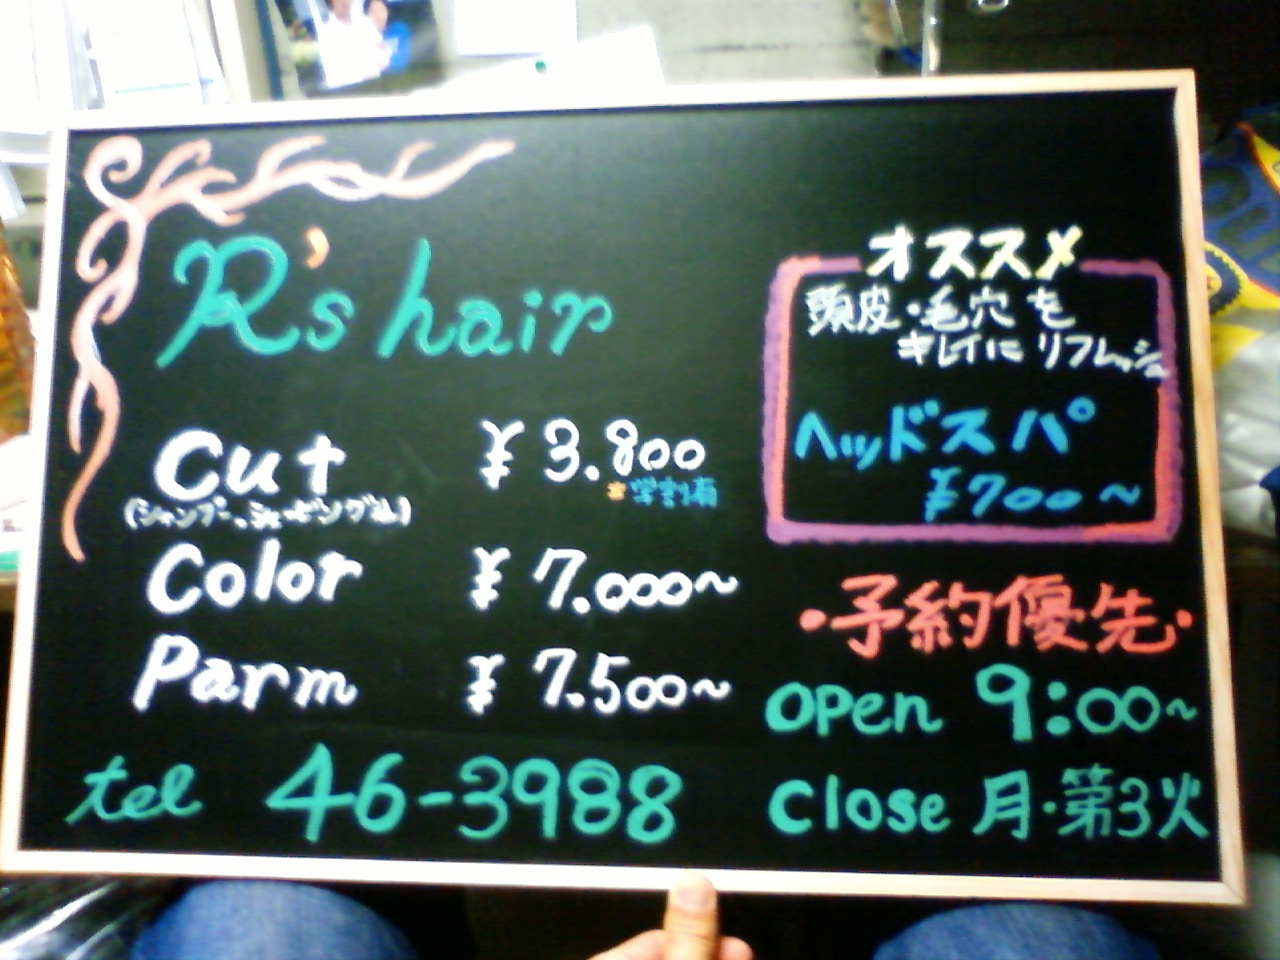 R's hair
Cut ¥3.800
(シャンプー、シェービング込)
*学割有
Color ¥7.000~
Parm ¥7.500~
tel 46-3988
オススメ
頭皮・毛穴を
キレイにリフレッシュ
ヘッドスパ
¥700~
・予約優先・
open 9:00~
close 月・第3火